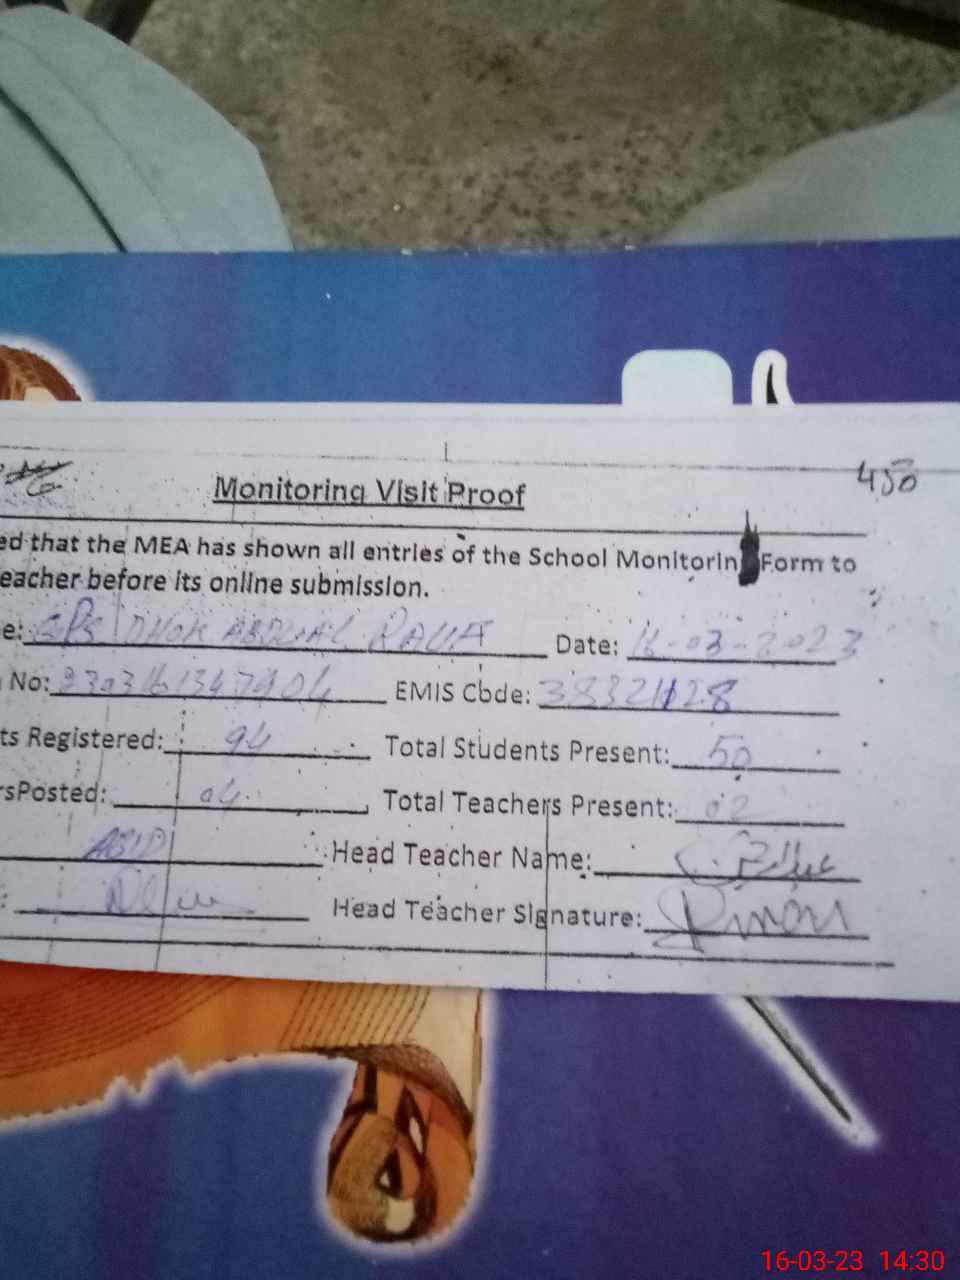 450
Monitoring Visit Proof
ed that the MEA has shown all entries of the School Monitorin Form to
eacher before its online submission.
e: GPS DHOK ABDUAL RAUF Date: 16-03-2023
No: EMIS Code: 38321128
ts Registered: 94 Total Students Present: 50
rsPosted: 04 Total Teachers Present: 02
ABID Head Teacher Name:
: Head Teacher Signature:
16-03-23 14:30